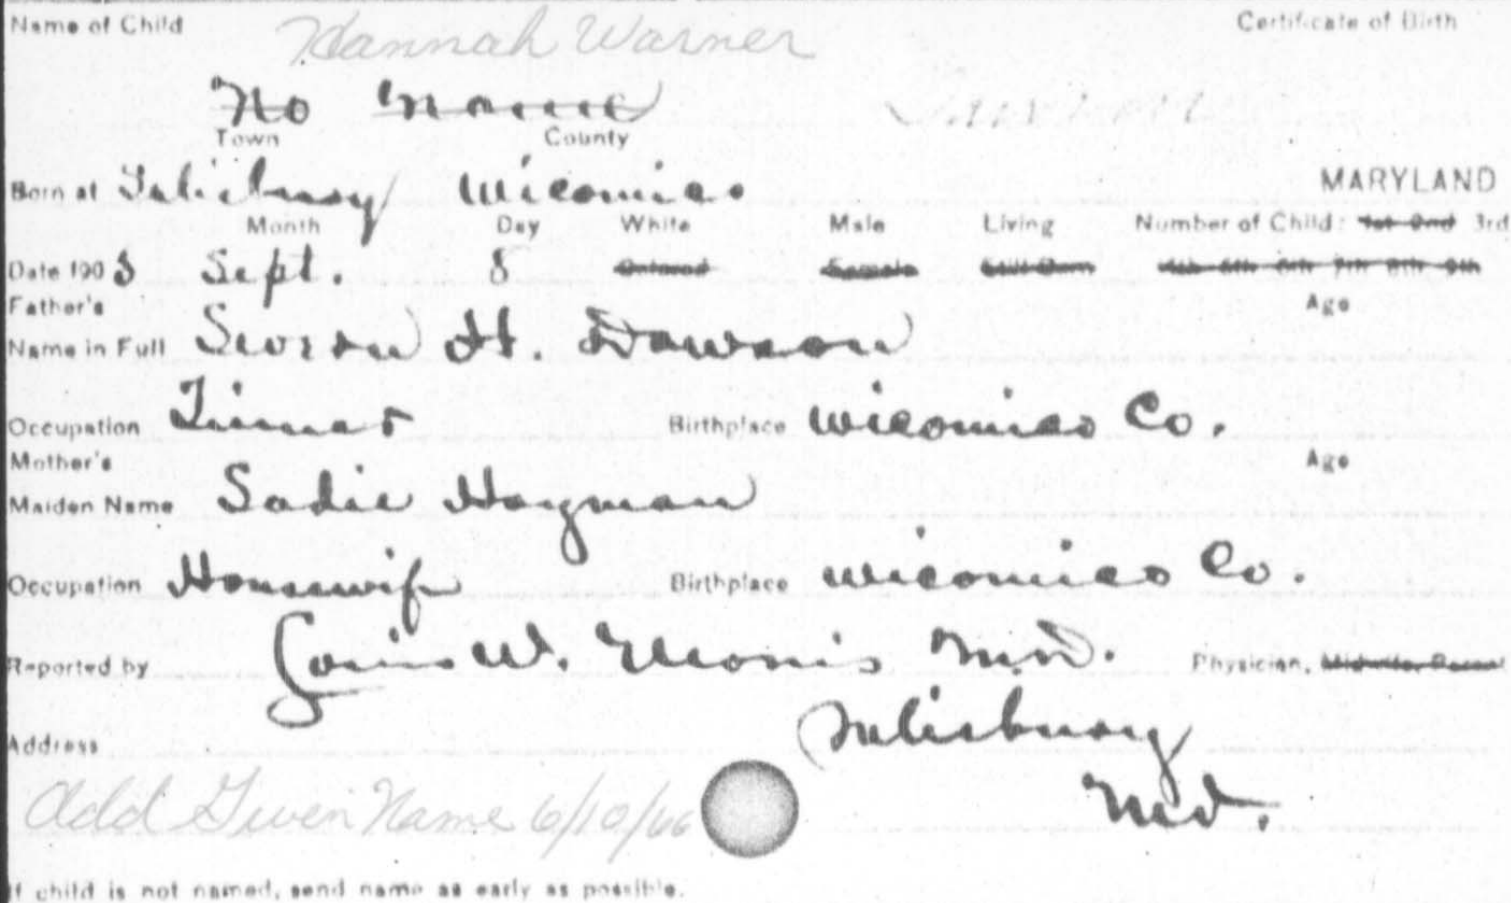 Name of Child Hannah Warner Certificate of Birth
No Name
Town County
Born at Salisbury Wicomico MARYLAND
Month Day White Male Living Number of Child: 1st 2nd 3rd
Date 1903 Sept. 8 Colored Female Still Born 4th 5th 6th 7th 8th 9th
Father's Age
Name in Full H. Dawson
Occupation Tinner Birthplace Wicomico Co.
Mother's Age
Maiden Name Sadie Hayman
Occupation Housewife Birthplace Wicomico Co.
Reported by Louis W. Morris M.D. Physician, Midwife,
Address Salisbury
Md.
Add Given Name 6/10/66
If child is not named, send name as early as possible.